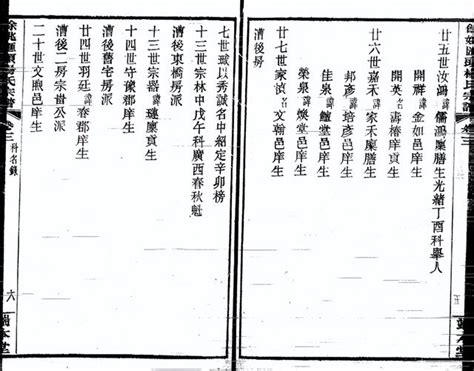 廿五世汝鴻 譜 儒鴻廩膳生光緒丁酉科舉人
開祥 譜 金如邑庠生
開英 名 濤椿庠貢生
廿六世嘉禾 譜 家禾廩膳生
邦彥 譜 培彥邑庠生
佳泉 譜 鱣堂邑庠生
榮泉 譜
廿七世家湞 譜 文翰邑庠生
漕後房
五
端本堂
七世珹以秀誠名中紹定辛卯榜
十三世宗林中戊午科廣西春秋魁
漕後東橋房派
十三世宗器 譜 璉廩貢生
十四世守豫郡庠生
漕後舊宅房派
廿四世羽廷 譜 春郡庠生
漕後二房宗畨公派
二十世文煦邑庠生
卷二
科名錄
六
端本堂